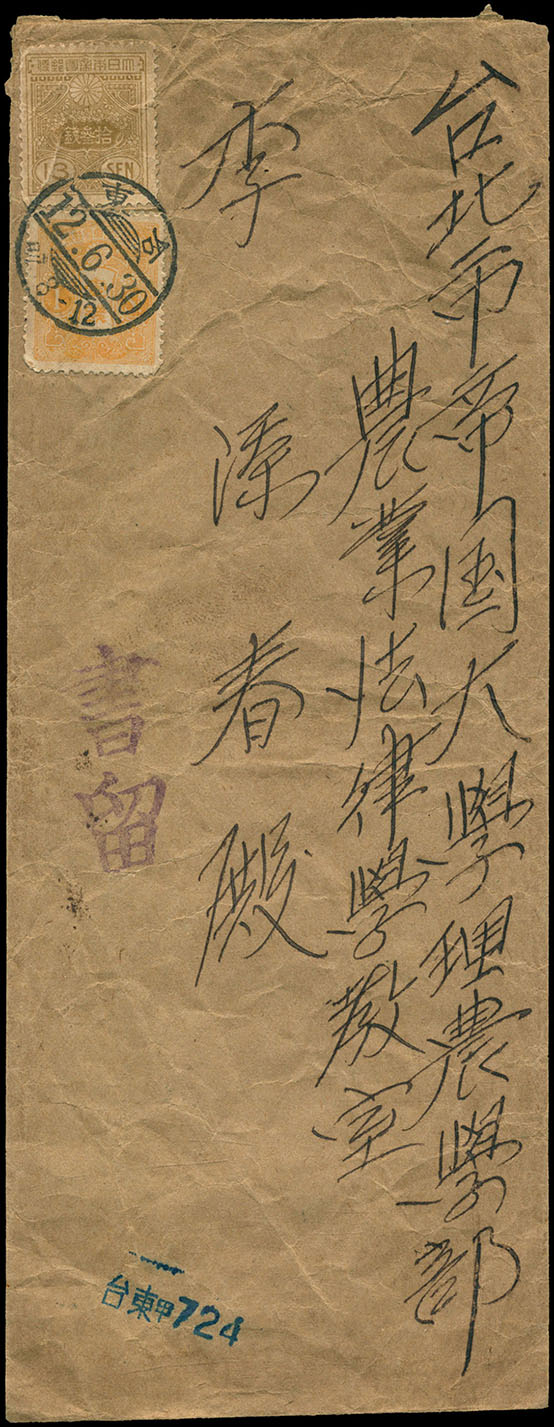 台北市帝国大學理農學部
農業法律學教室
李添春殿
大日本帝國郵便
拾叁錢
13 SEN
台東
12.6.30
8-12
書留
台東甲724